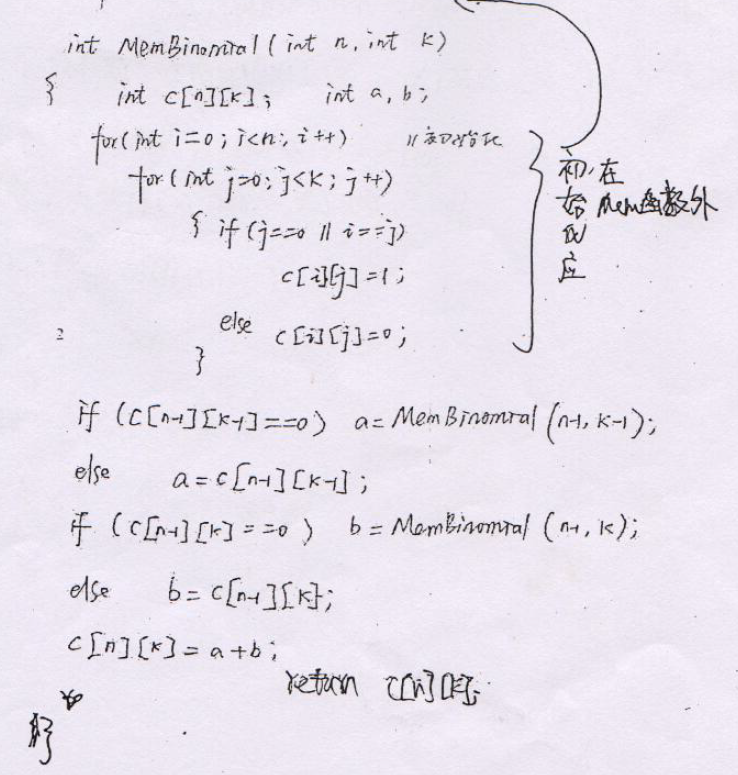 int MemBinomial ( int n, int k )
{ int c[n][k]; int a, b;
for( int i=0; i<n; i++) // 初始化
for ( int j=0; j<k; j++)
{ if (j==0 || i==j)
c[i][j]=1;
else c[i][j]=0;
}
初始化应在Mem函数外
if (C[n-1][k-1]==0) a= MemBinomial (n-1, k-1);
else a=c[n-1][k-1];
if (C[n-1][k]==0) b= MemBinomial (n-1, k);
else b=c[n-1][k];
c[n][k]= a+b;
return c[n][k];
}